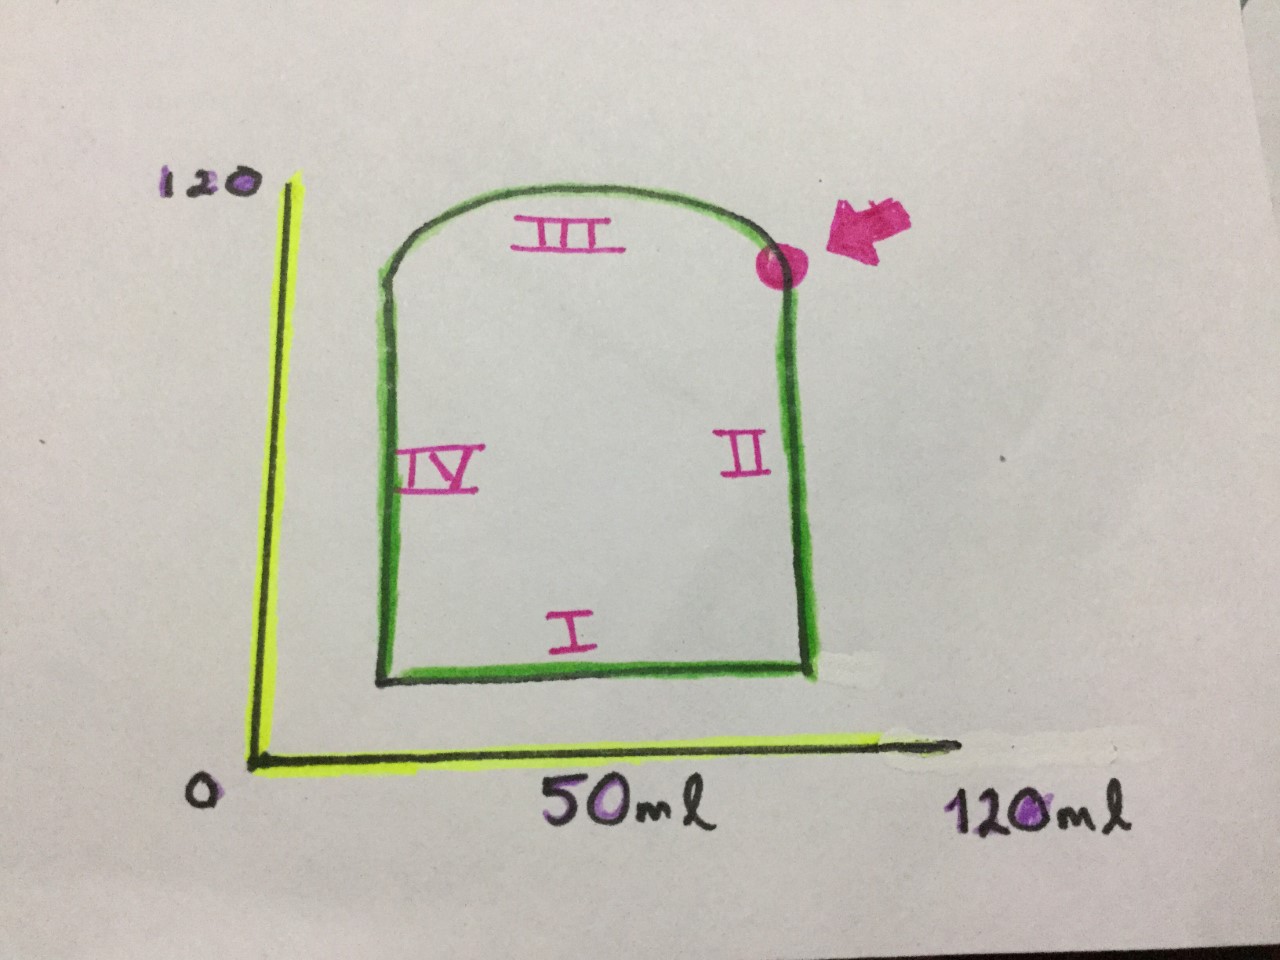 120
III
IV
II
I
0
50ml
120ml